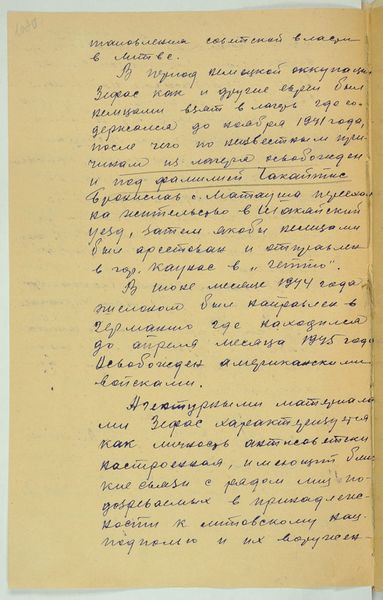 тановления советской власти
в Литве.
В период немецкой оккупации
Зефас как и другие евреи был
немцами взят в лагерь где со-
держался до ноября 1941 года,
после чего по неизвестным при-
чинам из лагеря освобожден
и под фамилией Чакайтис
Бронислав с. Матауша переехал
на жительство в Шакайский
уезд, затем якобы немцами
был арестован и отправлен
в гор. Каунас в "гетто".
В июне месяце 1944 года
эшелоном был направлен в
Германию где находился
до апреля месяца 1945 года
освобожден американскими
войсками.
Агентурными материала-
ми Зефас характеризуется
как личность антисоветски
настроенная, имеющий близ
кие связи с рядом лиц по-
дозреваемых в принадлеж-
ности к литовскому нац.
подполью и их вооружен-